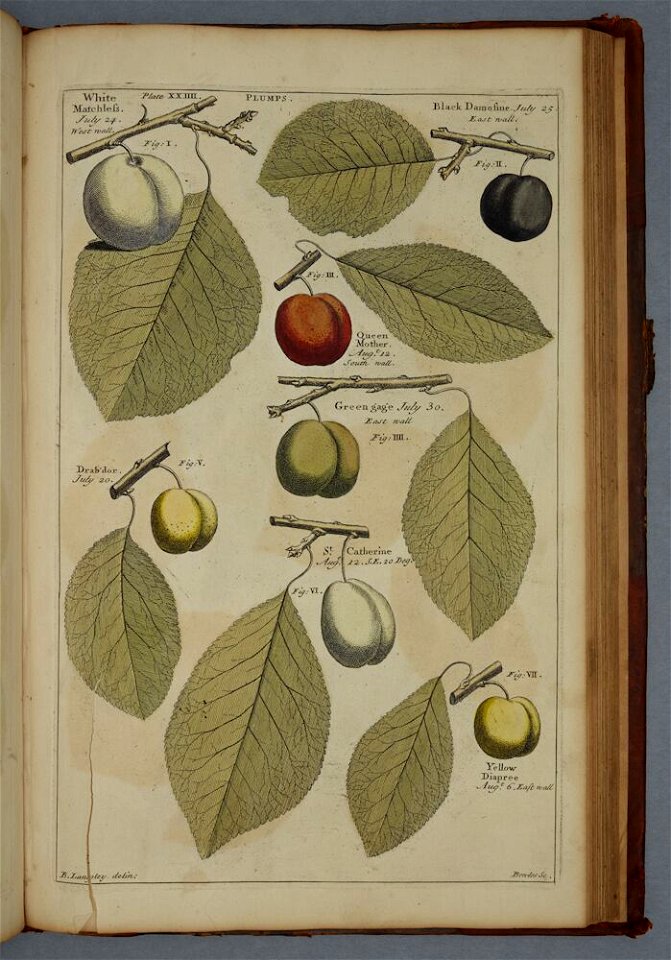 Plate XXIIII.
PLUMPS.
White
Matchleſs.
July 24.
West wall.
Fig: I.
Black Damosine July 25.
East wall.
Fig: II.
Fig: III.
Queen
Mother.
Augst. 12.
South wall.
Green gage July 30.
East wall
Fig: IIII.
Drab'dor.
July 20.
Fig: V.
St. Catherine
Augst. 12. S.E. 20 Deg:
Fig: VI.
Fig: VII.
Yellow
Diapree
Augst. 6. East wall
B. Langley delin:
Bowles Sc.